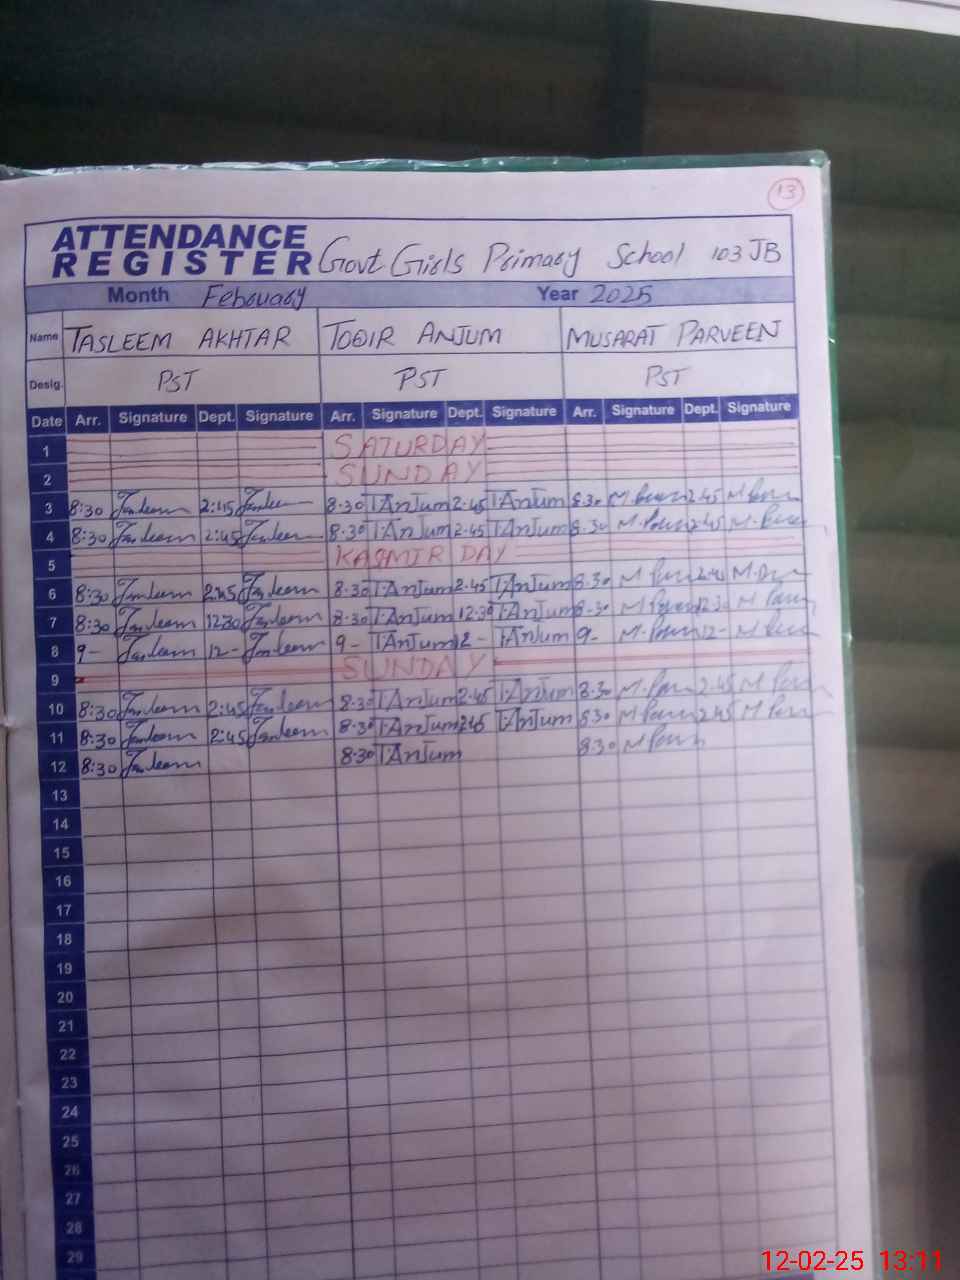 13
ATTENDANCE
REGISTER Govt Girls Primary School 103 JB
Month February Year 2025
Name TASLEEM AKHTAR TOQIR ANJUM MUSARAT PARVEEN
Desig. PST PST PST
Date Arr. Signature Dept. Signature Arr. Signature Dept. Signature Arr. Signature Dept. Signature
1 SATURDAY
2 SUNDAY
3 8:30 Tasleem 2:45 Tasleem 8·30 T.Anjum 2·45 T.Anjum 8·30 2·45
4 8:30 Tasleem 2:45 Tasleem 8·30 T.Anjum 2·45 T.Anjum 8·30 2·45
5 KASMIR DAY
6 8:30 Tasleem 2:45 Tasleem 8·30 T.Anjum 2·45 T.Anjum 8·30 2·45
7 8:30 Tasleem 12:30 Tasleem 8·30 T.Anjum 12·30 T.Anjum 8·30 12·30
8 9- Tasleem 12- Tasleem 9- T.Anjum 12- T.Anjum 9- 12-
9 SUNDAY
10 8:30 Tasleem 2:45 Tasleem 8·30 T.Anjum 2·45 T.Anjum 8·30 2·45
11 8:30 Tasleem 2:45 Tasleem 8·30 T.Anjum 2·45 T.Anjum 8·30 2·45
12 8:30 Tasleem 8·30 T.Anjum 8·30
13
14
15
16
17
18
19
20
21
22
23
24
25
26
27
28
29
12-02-25 13:11